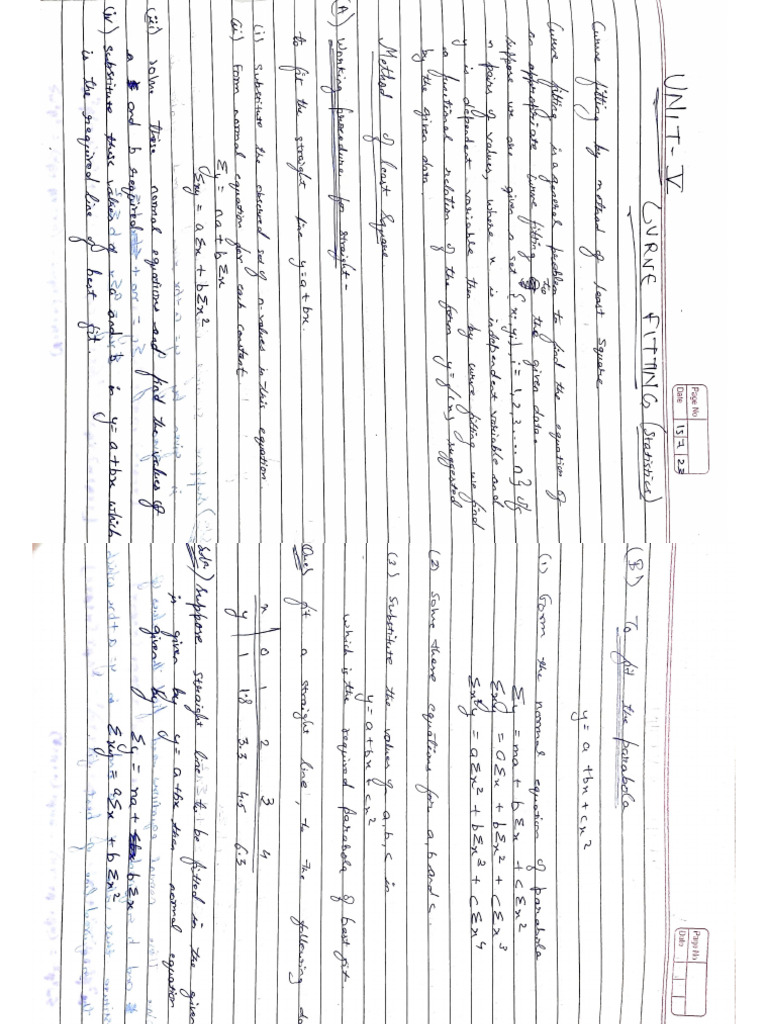 Page No
Date 15 7 23
UNIT-V
CURVE FITTING (Statistics)
Curve fitting by method of least square
Curve fitting is a general problem to find the equation of
an appropriate curve fitting to the given data.
suppose we are given a set {xi yi), i = 1, 2, 3 .... n} of
n pairs of values, where x is independent variable and
y is dependent variable then by curve fitting we find
a functional relation of the form y = f(x) suggested
by the given data.
Method of least square
(A) Working procedure for straight-
to fit the straight line y = a + bx.
(i) substitute the observed set of n-values in this equation
(ii) Form normal equation for each constant
Σy = na + bΣx
Σxy = aΣx + bΣx²
(iii) solve these normal equations and find the values of
a and b required
(iv) substitute these values of a and b in y = a + bx which
is the required line of best fit.
Page No
Date
(B) To fit the parabola
y = a + bx + cx²
(1) Form the normal equation of parabola
Σy = na + bΣx + cΣx²
Σxy = aΣx + bΣx² + cΣx³
Σx²y = aΣx² + bΣx³ + cΣx⁴
(2) Solve these equations for a, b and c.
(3) substitute the value of a, b, c in
y = a + bx + cx²
which is the required parabola of best fit.
Que) fit a straight line, to the following
x 0 1 2 3 4
y 1 1.8 3.3 4.5 6.3
Soln) suppose straight line to be fitted in the given
is given by y = a + bx then normal equation
given by
Σy = na + bΣx
Σxy = aΣx + bΣx²